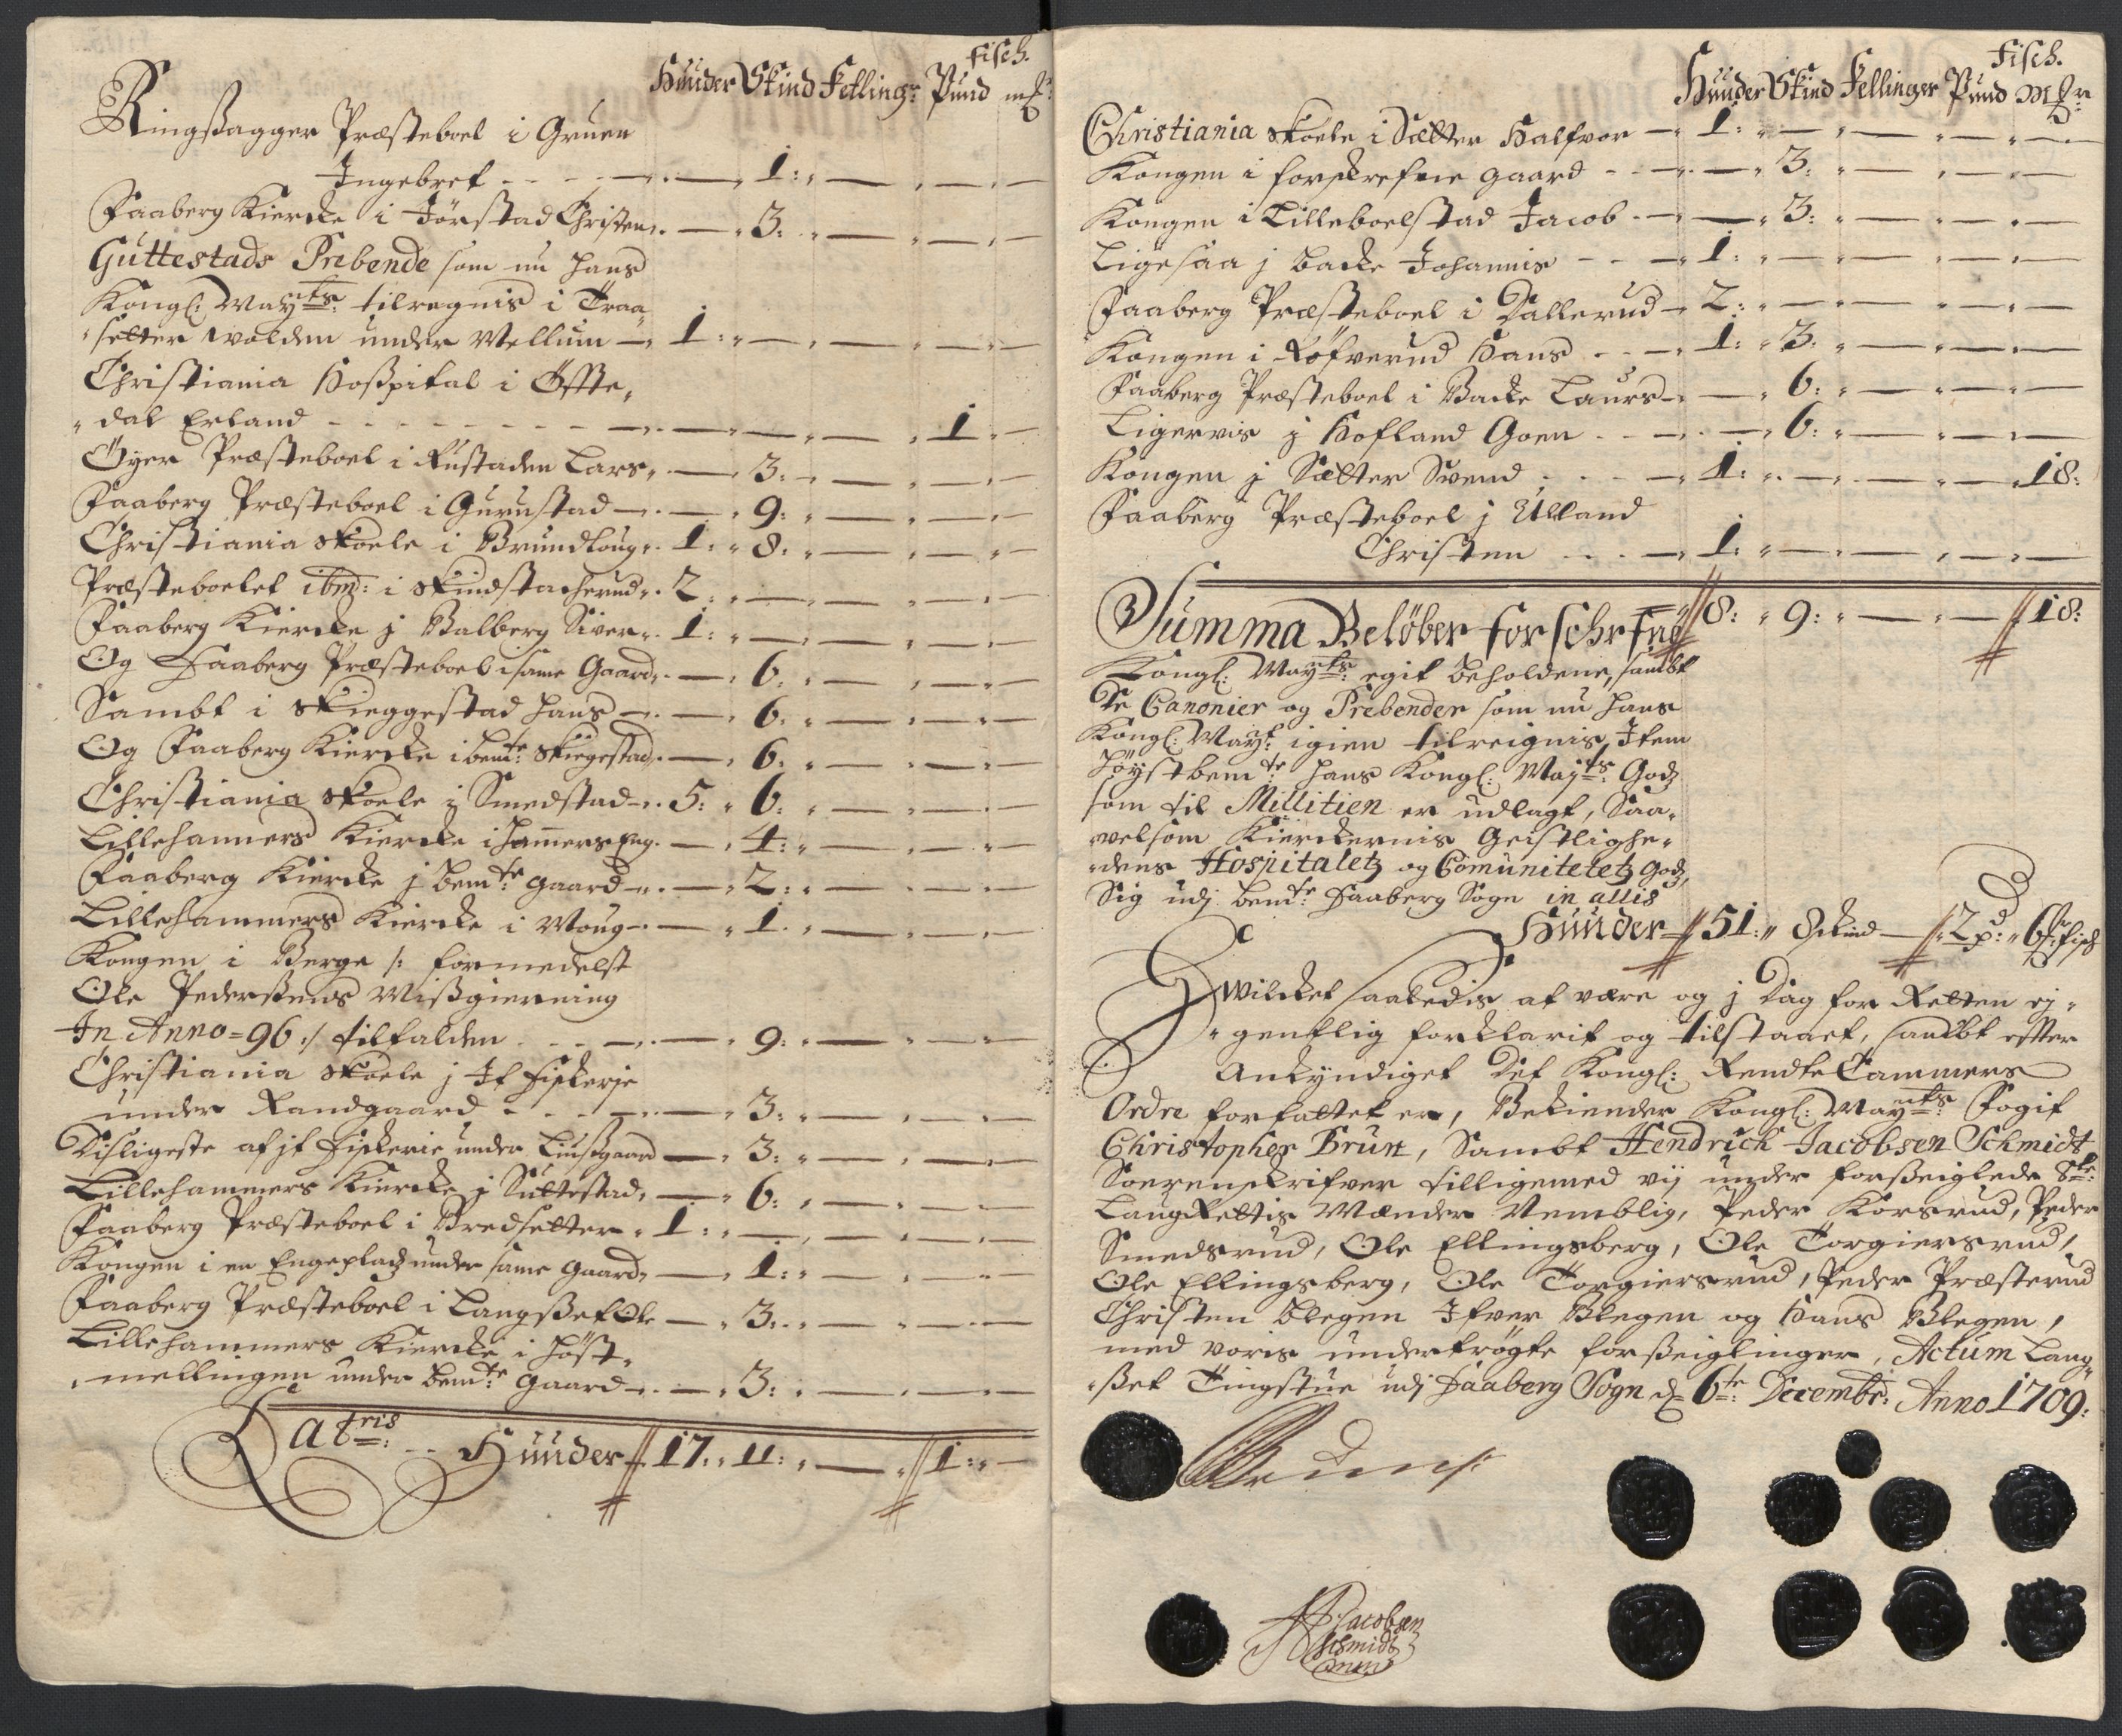 Fisch.
Huuder Skind Fetling: Pund mk:
Ringßagger Præsteboel i Gruen
Ingebret - - - — 1: — — —
Faaberg Kiercke i Jørstad Christen — 3: — — —
Guttestads Prebende som nu hans
Kongl: Mayts: tilregnis i Traa„
„setter wolden under Mellum — 1: — — — —
Christiania Hoßpital i Øffte„
„dal Erland - - - - — — — 1 —
Öyer Præsteboel i Rustaden Lars — 3: — — —
Faaberg Præsteboel i Gurustad — 9: — — —
Christiania Skoele i Brundloug 1: 8: — — —
Præsteboelet ibm: i Skindstacherud 2: — — — —
Faaberg Kiercke j Balberg Siver 1: — — — —
Og Faaberg Præsteboel i same Gaard — 6: — — —
Sambt i Skieggestad Hans — 6: — — —
Og Faaberg Kiercke i bemte: Skiegestad — 6: — — —
Christiania Skoele j Smedstad 5: 6: — — —
Lillehammers Kiercke i Hamers Eng — 4: — — —
Faaberg Kiercke j bemte: gaard — 2: — — —
Lillehammers Kiercke i Moug — 1. — — —
Kongen i Berge /: formedelst
Ole Pedersens Mißgierning
In Anno=96 :/ tilfalden - - — 9: — — —
Christiania Skoele j It Fiskerje
under Randgaard - - - — 3: — — —
Disligeste af it Fiskerie under Liusgaard — 3: — — —
Lillehammers Kiercke j Suttestad — 6: — — —
Faaberg Præsteboel i Bredsetter 1: — — — —
Kongen i en Engeplads under same Gaard — 1: — — —
Faaberg Præsteboel i Langßet Ole — 3: — — —
Lillehammers Kiercke i Høst„
„mellingen under bemte: gaard — 3: — — —
Latris: - - Huuder 17: 11: — 1: —
Fisch.
Huuder Skind Fellinger Pund Mkr:
Christiania Skoele i Sætter Halfvor — 1: — — — —
Kongen i forskrefne gaard - - — 3: — — —
Kongen i Lilleboelstad Jacob — 3: — — —
Ligesaa j Backe Johannis - - 1: — — — —
Faaberg Præsteboel i Dallerud 2: — — — —
Kongen i Röfverud Hans - - 1: 3: — — —
Faaberg Præsteboel i Backe Laurs — 6: — — —
Ligervis j Hofland Goen - - — 6: — — —
Kongen j Sætter Svend - - 1: — — — 18:
Faaberg Præsteboel j Ulland
Christen - - - 1: — — — —
Summa Belöber forschrefne 8: 9: — — 18:
Kongl: Mayts: egit beholdene, sambt
De Canonier og Prebender som nu hans
Kongl: Mayt: igien tilreignis, Item
höystbemte: hans Kongl: Mayts: Gods
som til Millitien er udlagt, Saa„
„velsom Kierckernis Geistlighe„
„dens Hospitaletz og Comunitetetz Gods,
Sig udj bemte: Faaberg Sogn in allis
Huuder 51: 8 skind — 2 p: 6 mkr: fisch
Hwilcket saaledis at være og j Dag for Retten ej„
„gentlig forklarit og tilstaaet, sambt effter
Ankyndiget Det Kongl: Rendte Cammers
Ordre forfattet er, Bekiender Kongl: Mayts: Fogit
Christopher Brun, Sambt Hendrich Jacobsen Schmidt
Sorenskrifver tilligemed vij under forßeiglede 8te:
Laug Rettis Mænder Nemblig, Peder Korsrud, Peder
Smedsrud, Ole Ellingsberg, Ole Torgiersrud,
Ole Ellingsberg, Ole Torgiersrud, Peder Præsterud
Christen Blegen Ifver Blegen og Hans Blegen,
med voris undertrögte forßeiglinger, Actum Lang„
„ßet Tingstue udj Faaberg Sogn d: 6te: Decembr: Anno 1709:
CBrun
HJacobsen
Schmidt